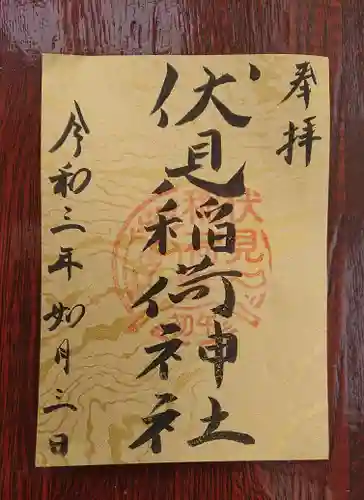 奉拝
伏見稲荷神社
令和三年如月三日
伏見